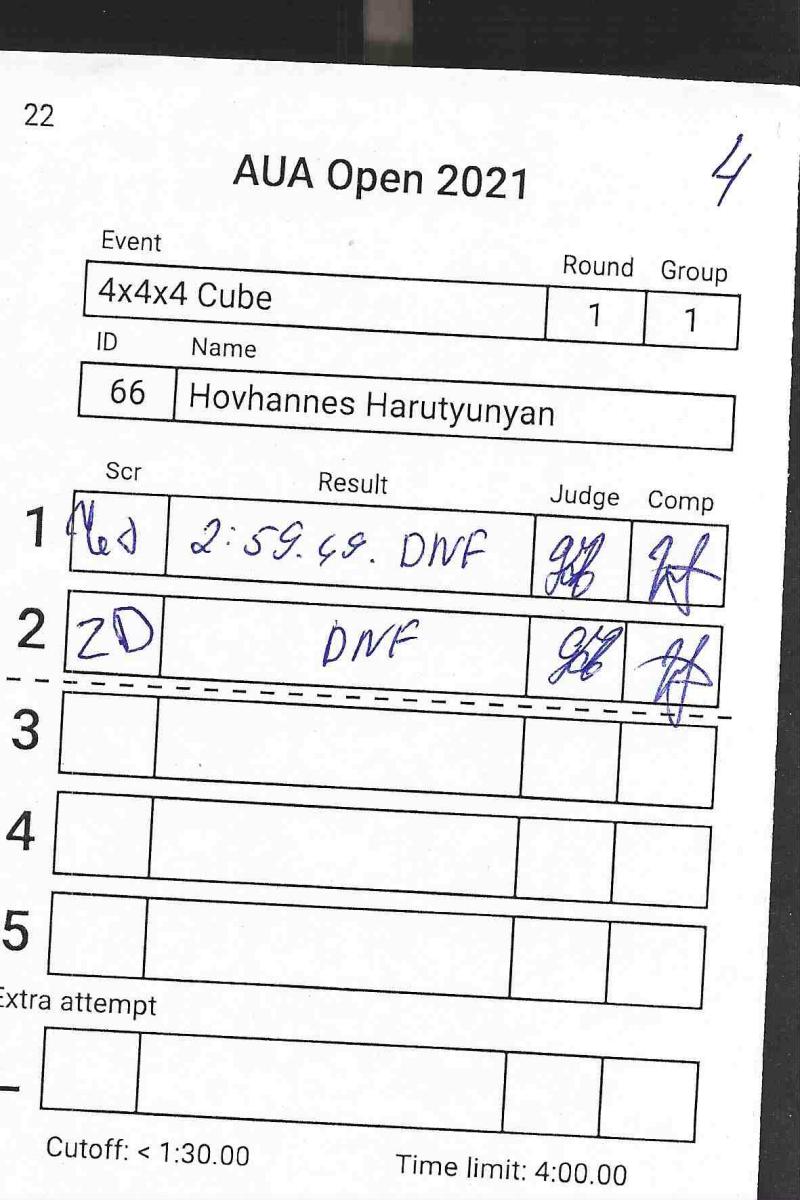 22
4
AUA Open 2021
Event Round Group
4x4x4 Cube 1 1
ID Name
66 Hovhannes Harutyunyan
Scr Result Judge Comp
1 2:59.49. DNF
2 ZD DNF
3
4
5
Extra attempt
_
Cutoff: < 1:30.00 Time limit: 4:00.00